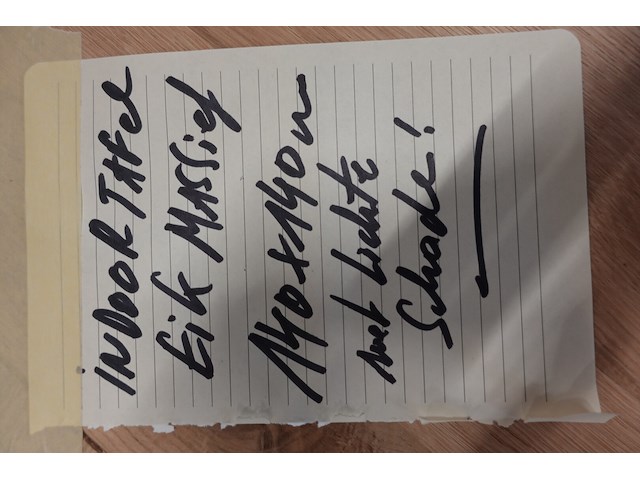 INDOOR TAFel
Eik MASSief
140x140
met lichte
Schade!